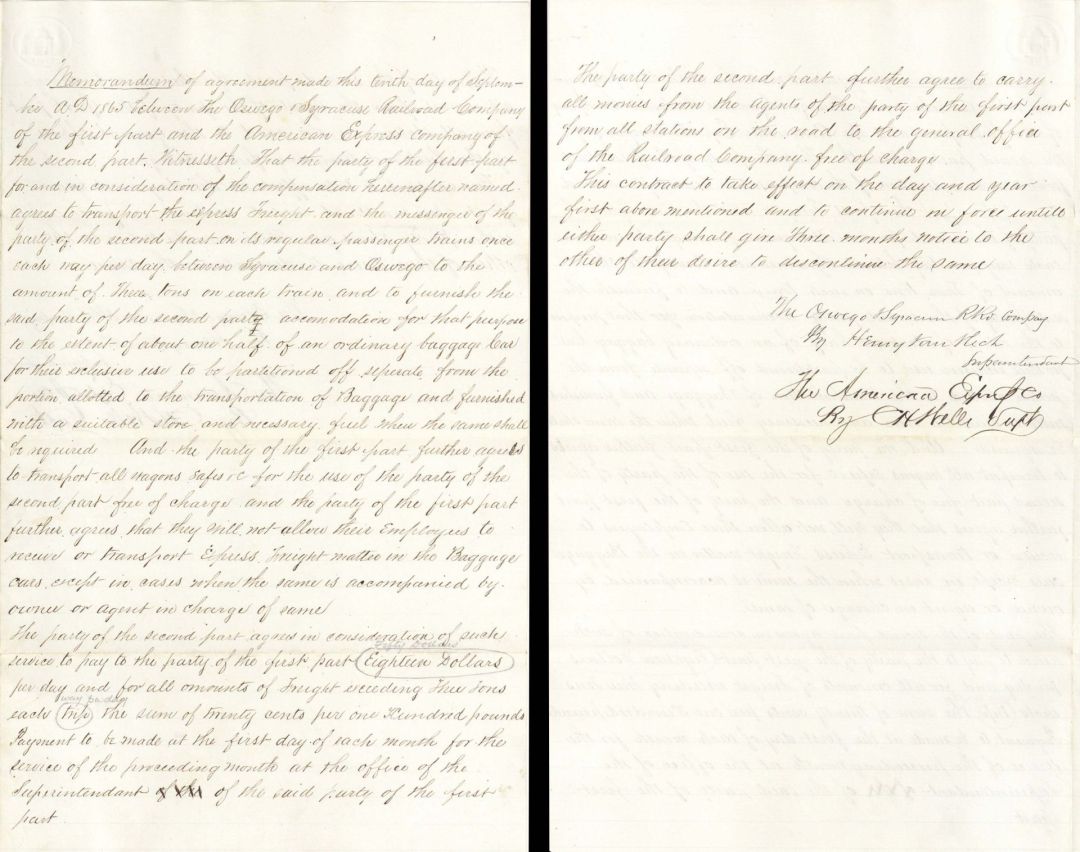 Memorandum of agreement made this tenth day of Septem-
ber A D 1865 between The Oswego & Syracuse Railroad Company
of the first part and the American Express company of
the second part. Witnesseth That the party of the first part
for and in consideration of the compensation hereinafter named
agrees to transport the express Freight and the messenger of the
party of the second part on its regular passenger trains once
each way per day between Syracuse and Oswego to the
amount of Three tons on each train and to furnish the
said party of the second party accomodation for that purpose
to the extent of about one half of an ordinary baggage Car
for their exclusive use to be partitioned off seperate from the
portion allotted to the transportation of Baggage and furnished
with a suitable stove and necessary fuel when the same shall
be required And the party of the first part further agrees
to transport all wagons safes &c for the use of the party of the
second part free of charge and the party of the first part
further agrees that they will not allow their Employees to
receive or transport Express Freight matter in the Baggage
cars except in cases when the same is accompanied by
owner or agent in charge of same
The party of the second part agrees in consideration of such
Dollars
service to pay to the party of the first part Eighteen Dollars
per day and for all amounts of Freight exceeding Three Tons
way per day
each trip the sum of twenty cents per one Hundred pounds
Payment to be made at the first day of each month for the
service of the proceeding month at the office of the
Superintendant of the said party of the first
part
The party of the second part further agree to carry
all monies from the agents of the party of the first part
from all stations on the road to the general office
of the Railroad Company free of charge
This contract to take effect on the day and year
first above mentioned and to continue in force untill
either party shall give Three months notice to the
other of their desire to discontinue the same
The Oswego & Syracuse RRd Company
By Henry Van Vleck
Superintendent
The American Exp Co
By Wells Supt